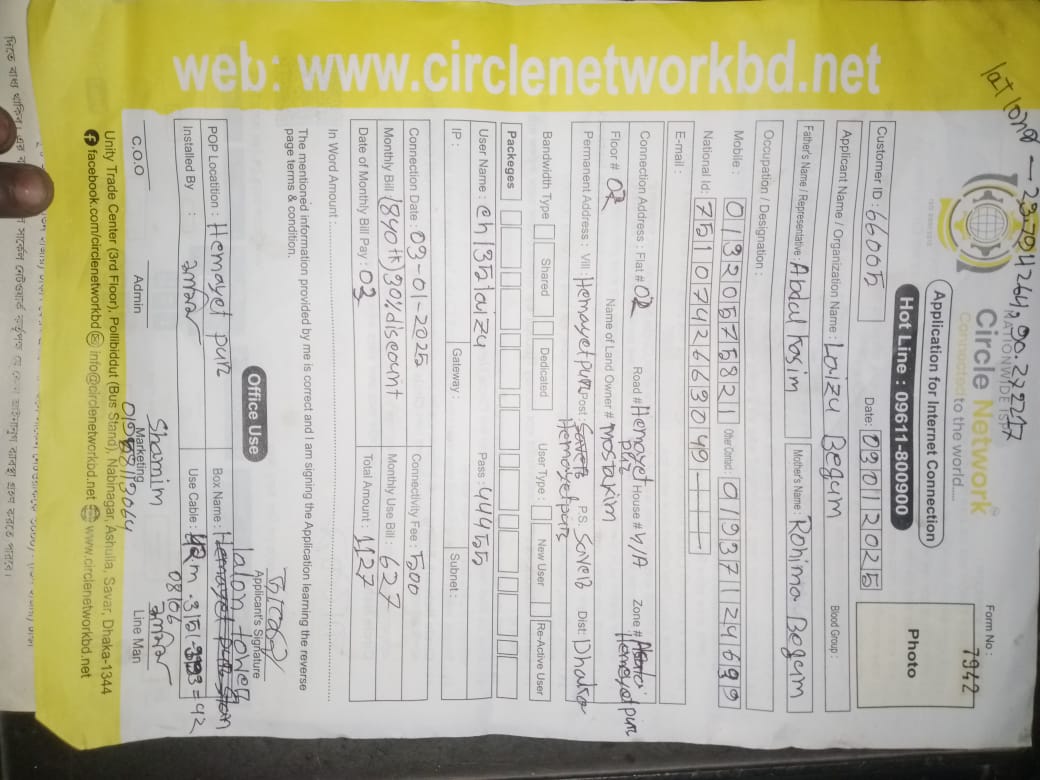 lat long — 23.7942641, 90.272247
Circle Network
NATIONWIDE ISP
Connected to the world....
Application for Internet Connection
Hot Line : 09611-800900
Form No :
7942
Photo
Customer ID : 66005
Date: 03 01 2025
Applicant Name / Organization Name : Laizu Begum
Blood Group :
Father's Name / Representative : Abdul kasim
Mother's Name : Rohima Begum
Occupation / Designation :
Mobile : 01320575821 Other Contact : 01937124699
National Id: 7510742663049
E-mail :
Connection Address : Flat # 02 Road # Hemayet pur House # N/A Zone # Hemayetpur
Floor # 02 Name of Land Owner # mostakim
Permanent Address : Vill : Hemayetpur Post : Hemayetpur P.S. Saver Dist: Dhaka
Bandwidth Type Shared Dedicated User Type : New User Re-Active User
Packeges
User Name : ch135laizu Pass : 44455
IP : Gateway : Subnet :
Connection Date : 03-01-2025 Connectivity Fee : 500
Monthly Bill 1840th 30% discount Monthly Use Bill : 627
Date of Monthly Bill Pay : 03 Total Amount : 1127
In Word Amount :
The mentioned information provided by me is correct and I am signing the Application learning the reverse
page terms & condition.
Applicant's Signature
Office Use
POP Locatition : Hemayet pur Box Name : lalon tower
Installed By : Use Cable : 42m
C.O.O Admin Shamim Marketing Line Man
Unity Trade Center (3rd Floor), Pollibiddut (Bus Stand), Nabinagar, Ashulia, Savar, Dhaka-1344
facebook.com/circlenetworkbd info@circlenetworkbd.net www.circlenetworkbd.net
web: www.circlenetworkbd.net